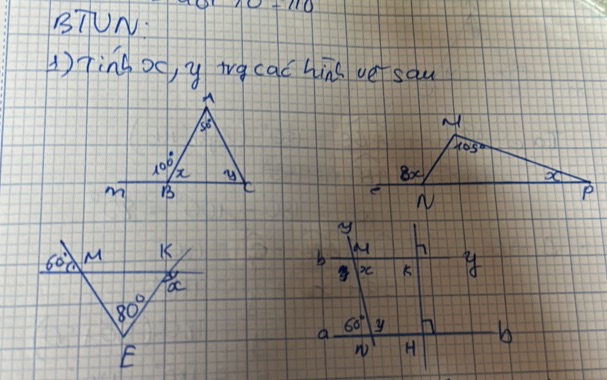 BTVN:
1) Tính x, y trg các hình vẽ sau
A
50°
100°
x
y
m
B
C
M
105°
8x
x
N
P
60°
M
K
x
80°
E
y
b
M
x
K
y
a
60°
y
N
H
b